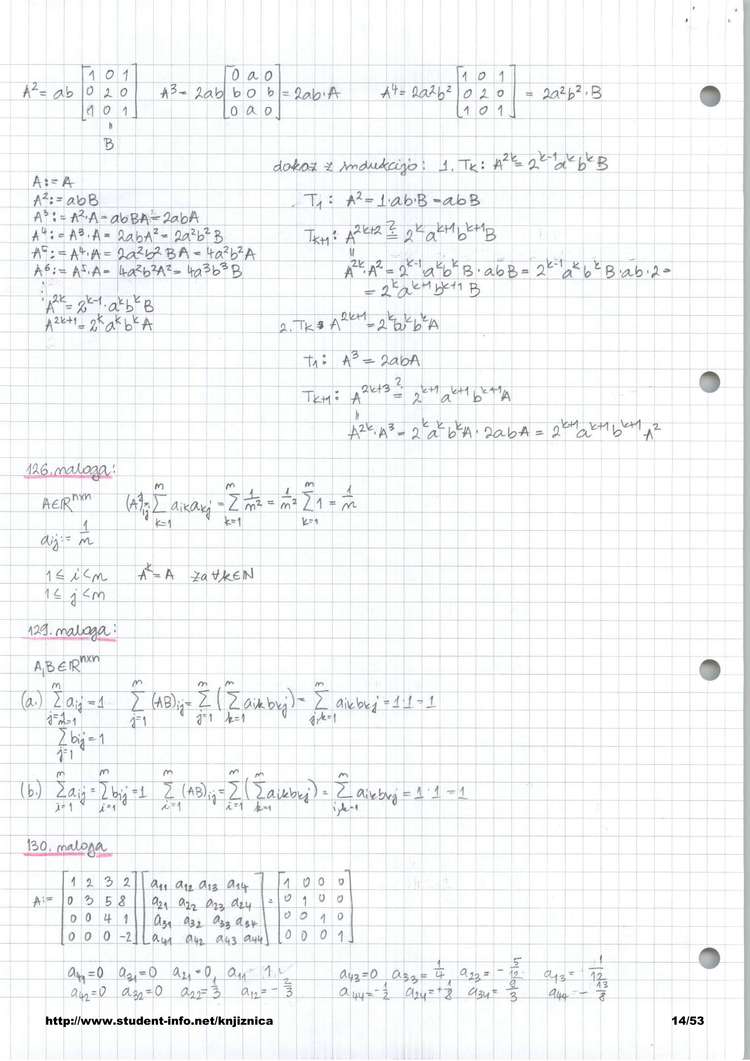 A² = ab [1 0 1; 0 2 0; 1 0 1] A³ = 2ab [0 a 0; b 0 b; 0 a 0] = 2ab·A A⁴ = 2a²b² [1 0 1; 0 2 0; 1 0 1] = 2a²b²·B
B
dokaz z indukcijo: 1. Tk: A^2k = 2^k-1 a^k b^k B
A := A
A² := abB
A³ := A²·A = abBA = 2abA
A⁴ := A³·A = 2abA² = 2a²b²B
A⁵ := A⁴·A = 2a²b²BA = 4a²b²A
A⁶ := A⁵·A = 4a²b²A² = 4a³b³B
⋮
A^2k = 2^k-1·a^k b^k B
A^2k+1 = 2^k a^k b^k A
T1: A² = 1·ab·B = abB
Tk+1: A^2k+2 ?= 2^k a^k+1 b^k+1 B
A^2k·A² = 2^k-1 a^k b^k B·abB = 2^k-1 a^k b^k B·ab·2 =
= 2^k a^k+1 b^k+1 B
2. Tk: A^2k+1 = 2^k a^k b^k A
T1: A³ = 2abA
Tk+1: A^2k+3 ?= 2^k+1 a^k+1 b^k+1 A
A^2k·A³ = 2^k a^k b^k A·2abA = 2^k+1 a^k+1 b^k+1 A²
126. naloga:
A∈ℝ^n×n (A²)ij = Σ(k=1..n) aik akj = Σ(k=1..n) 1/n² = 1/n² Σ(k=1..n) 1 = 1/n
aij := 1/n
1 ≤ i < n A^k = A za ∀k∈ℕ
1 ≤ j < n
129. naloga:
A,B∈ℝ^n×n
(a.) Σ(j=1..n) aij = 1 Σ(j=1..n) (AB)ij = Σ(j=1..n) (Σ(k=1..n) aik bkj) = Σ(j,k=1..n) aik bkj = 1·1 = 1
Σ(j=1..n) bij = 1
(b.) Σ(i=1..n) aij = Σ(i=1..n) bij = 1 Σ(i=1..n) (AB)ij = Σ(i=1..n) (Σ(k=1..n) aik bkj) = Σ(i,k=1..n) aik bkj = 1·1 = 1
130. naloga
A := [1 2 3 2; 0 3 5 8; 0 0 4 1; 0 0 0 -2] [a11 a12 a13 a14; a21 a22 a23 a24; a31 a32 a33 a34; a41 a42 a43 a44] = [1 0 0 0; 0 1 0 0; 0 0 1 0; 0 0 0 1]
a41=0 a31=0 a21=0, a11=1 a43=0 a33=1/4 a23=-5/12 a13=1/12
a42=0 a32=0 a22=1/3 a12=-2/3 a44=-1/2 a34=+1/8 a44=-13/8
http://www.student-info.net/knjiznica 14/53